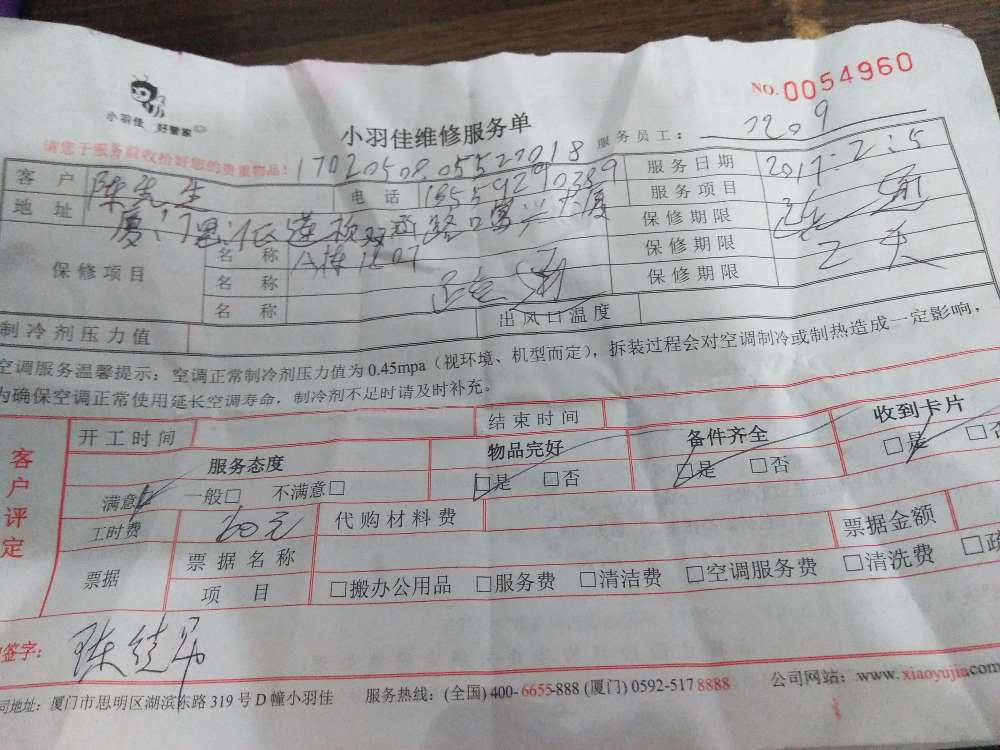 NO.0054960
小羽佳 好管家
小羽佳维修服务单
服务员工：
请您于服务前收拾好您的贵重物品！
1702050805527018
客户 陈先生 电话 服务日期 2017.2.5
地址 服务项目
保修项目 名称 保修期限
名称 保修期限
名称 保修期限
制冷剂压力值 出风口温度
空调服务温馨提示：空调正常制冷剂压力值为0.45mpa（视环境、机型而定），拆装过程会对空调制冷或制热造成一定影响，
为确保空调正常使用延长空调寿命，制冷剂不足时请及时补充。
客户评定
开工时间 结束时间
服务态度 物品完好 备件齐全 收到卡片
满意 一般□ 不满意□ □是 □否 □是 □否 □是 □否
工时费 代购材料费
票据 票据名称 票据金额
项目 □搬办公用品 □服务费 □清洁费 □空调服务费 □清洗费
签字：
地址：厦门市思明区湖滨东路319号D幢小羽佳 服务热线：(全国)400-6655-888 (厦门)0592-517 8888 公司网站：www.xiaoyujia.com